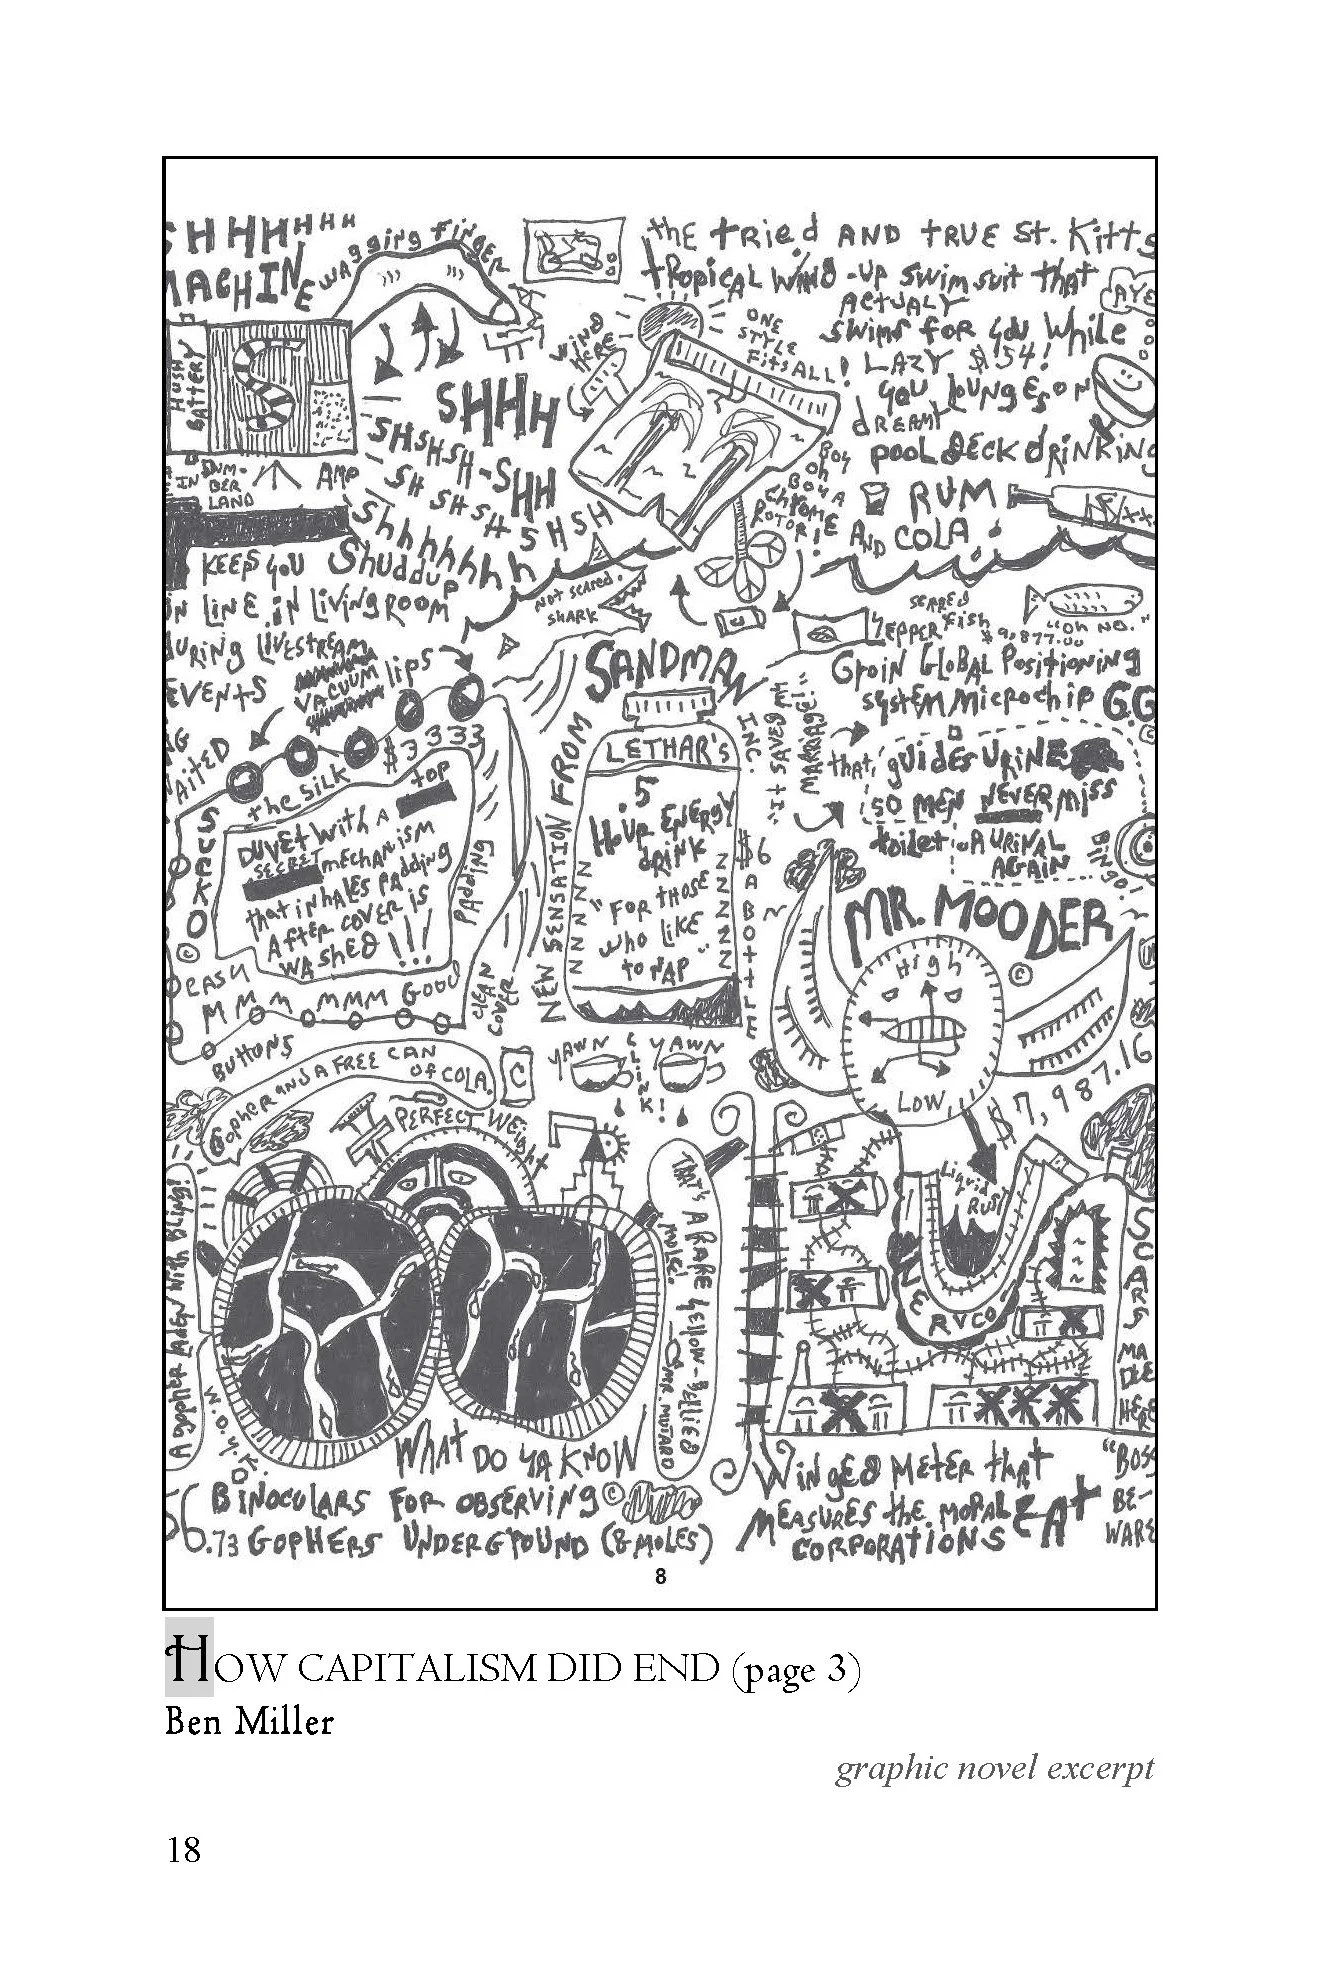 SHHHHHHH
MACHINE
WAGGING FINGER
HUSH
BATTERY
S
AMP
LAND
SHHH
SHSHSH-SHH
SHSHSH SHSH
Shhhhhhh
KEEPS YOU Shuddup
IN LINE IN LIVING ROOM
DURING LIVESTREAM
EVENTS
VACUUM
lips
$3333
SUCKO
©
the SILK
DUVET WITH A top
SECRET MECHANISM
that inhales PADDING
AFTER COVER IS
WASHED!!!
PADDING
CLEAN
COVER
MMM MMM GOOD
BUTTONS
the tried AND TRUE St. Kitts
tROPICAL WIND-UP SWIMSUIT that
ActUALY
swims for you While
LAZY $54!
you lounge on
dREAMY
pool DECK dRiNKiNG
RUM
AND COLA
WIND
HERE
ONE
STYLE
Fits ALL!
Boy
oh
BOY A
Chrome
ROTOR!
NOT SCARED.
SHARK
SCARED
Fish
"OH NO."
$9,877.00
ZEPPER
GROIN GLOBAL POSITIONING
system Microchip G.G
that guides URINE
SO MEN NEVER MISS
toilet or A URINAL
AGAIN
BINGO!
"It SAVED MY
MARRIAGE!"
NEW SENSATION FROM
SANDMAN
INC.
LETHAR'S
.5
HOUR ENERGY
dRINK
"FOR THOSE
who LIKE
to NAP"
NNNNNN
ZZZZZZ
$6
A
BOTTLE
YAWN
CLINK!
YAWN
MR. MOODER
©
High
LOW
$7,987.16
Liquid
RUST
SCARS
MADE
HERE
Gopher and A FREE CAN
of COLA.
C
PERFECT WEIGHT
A gopher laden with Bling!
W.D.Y.K.
THAT'S A RARE YELLOW-BELLIED
MOLE!
MR. MUTARD
WHAT DO YA KNOW
BINOCULARS FOR OBSERVING ©
.73 GOPHERS UNDERGROUND (& MOLES)
WINGED METER that
MEASURES the MORAL
EAT
CORPORATIONS
"BOSS
BE-
WARE
8
HOW CAPITALISM DID END (page 3)
Ben Miller
graphic novel excerpt
18